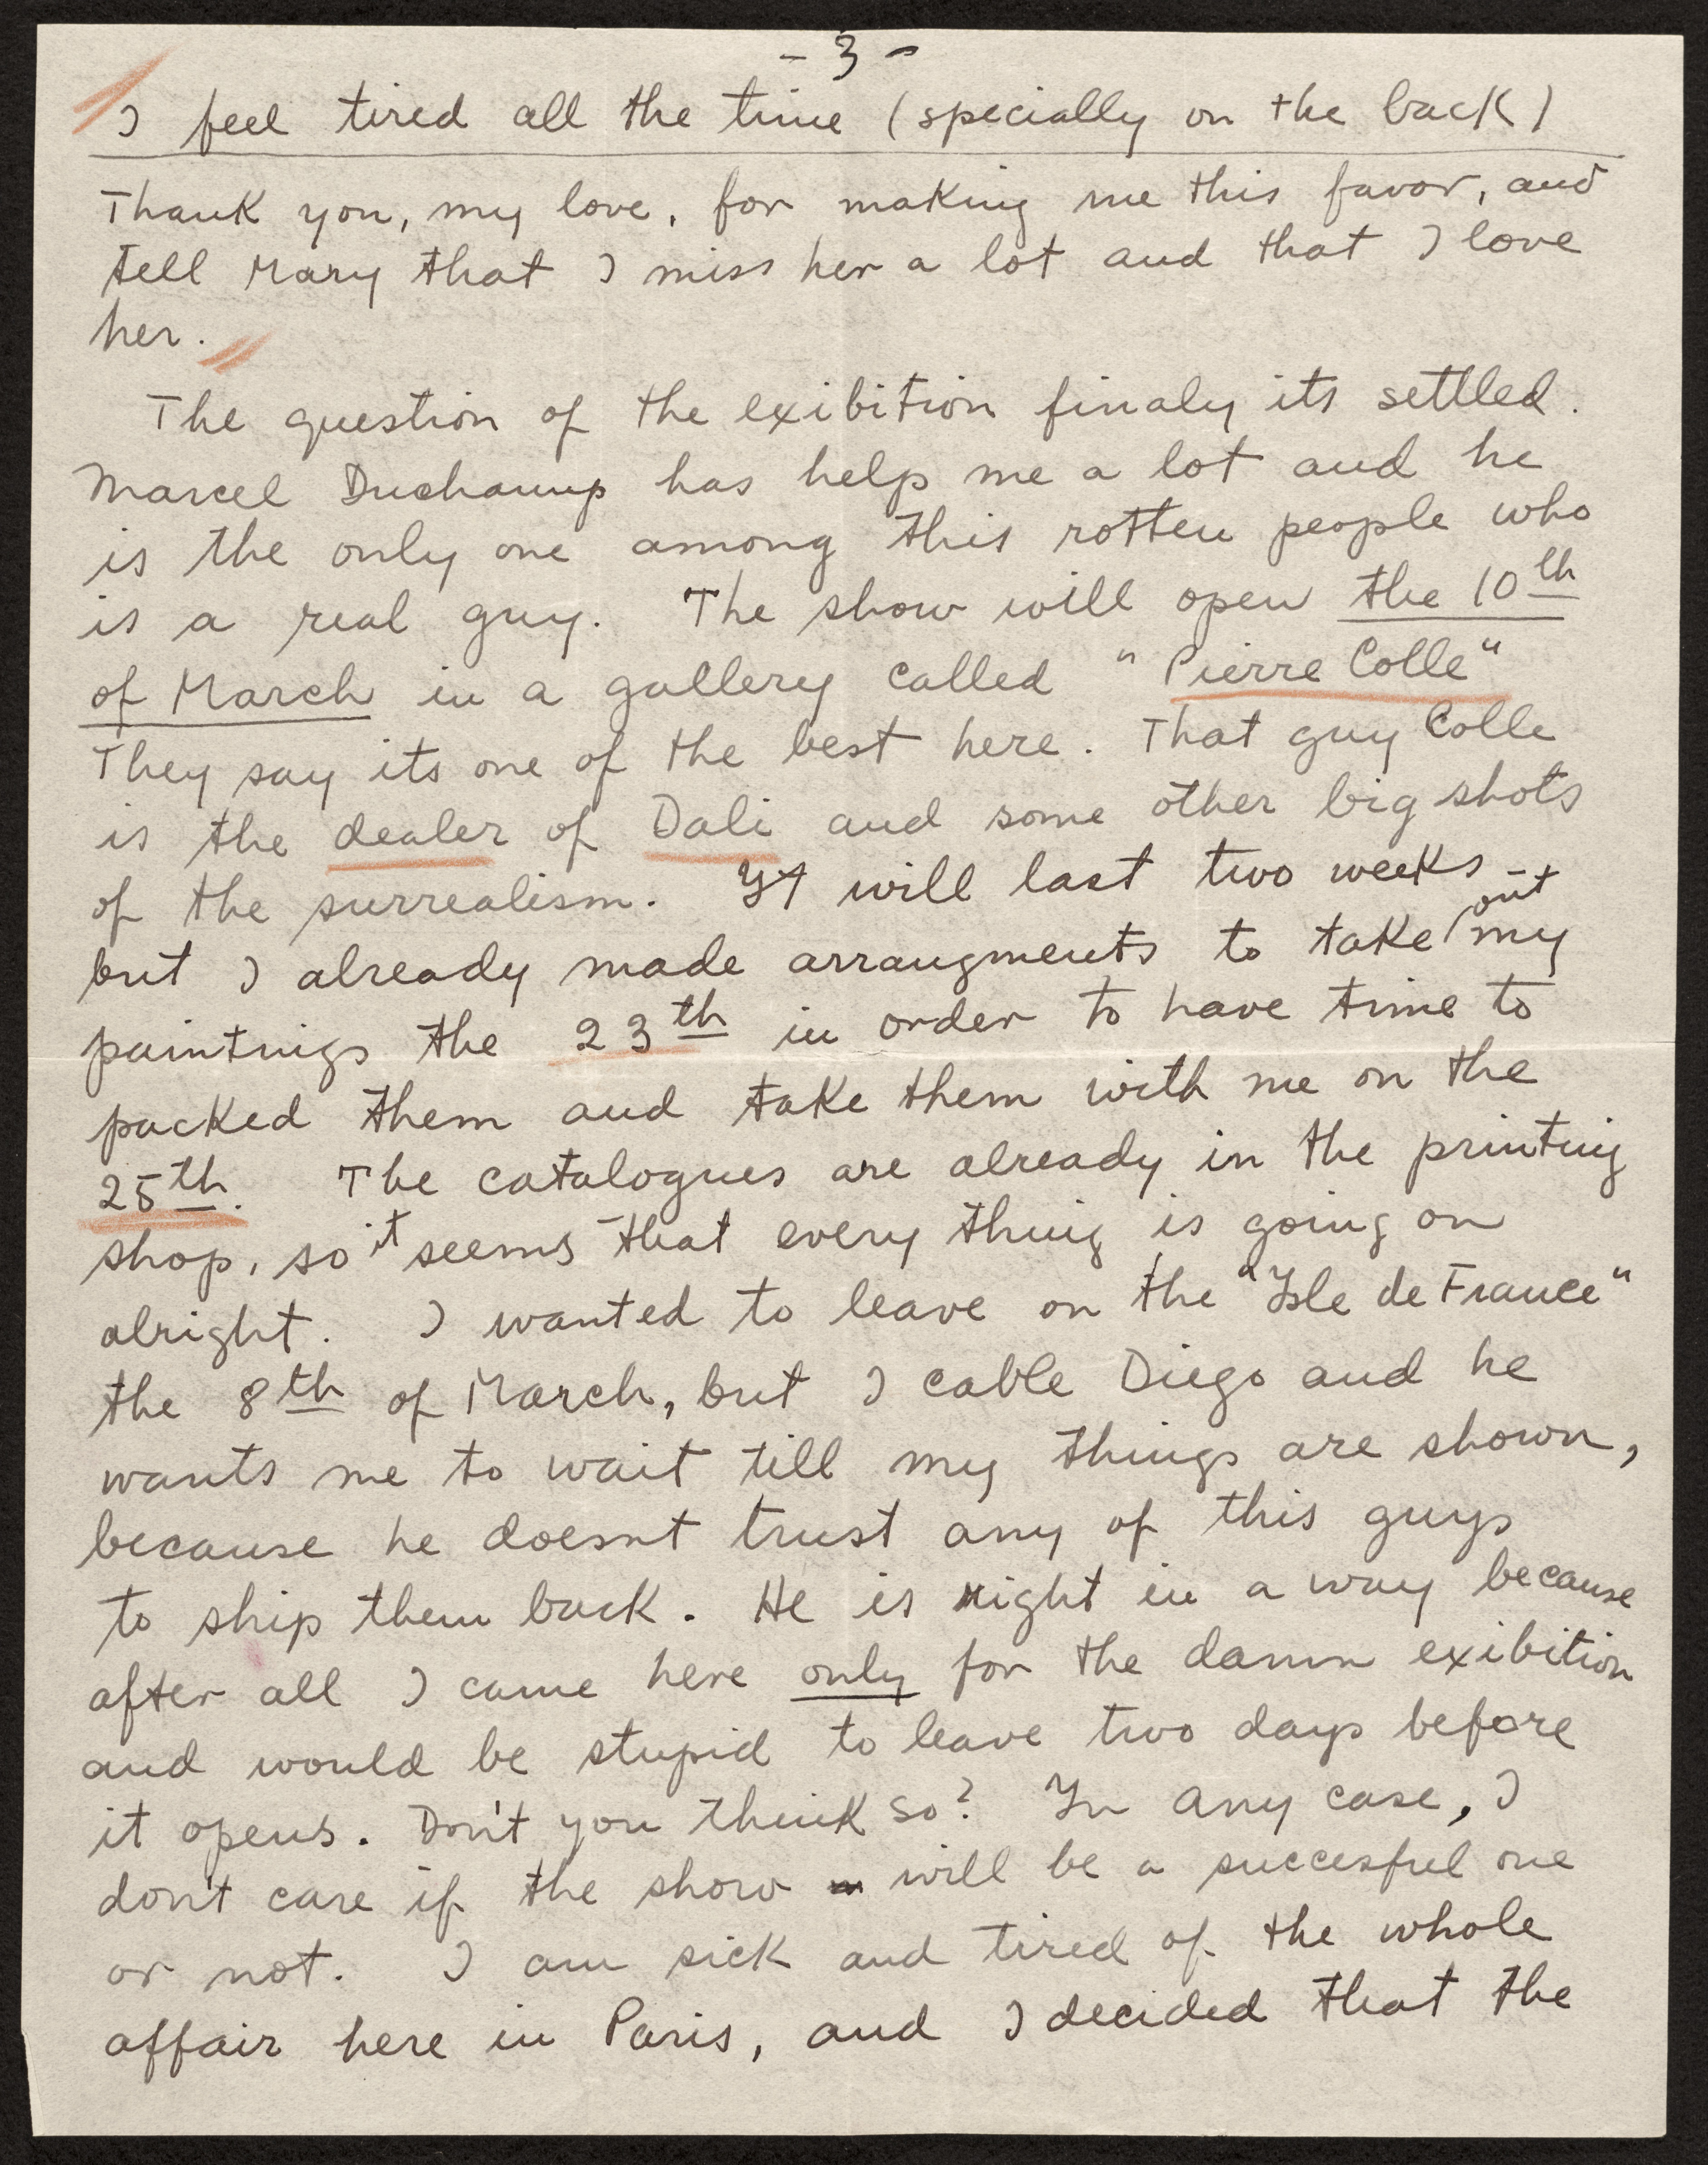 - 3 -
I feel tired all the time (specially on the back)
Thank you, my love, for making me this favor, and
tell Mary that I miss her a lot and that I love
her.
The question of the exibition finaly its settled.
Marcel Duchamp has help me a lot and he
is the only one among this rotten people who
is a real guy. The show will open the 10th
of March in a gallery called "Pierre Colle"
They say its one of the best here. That guy Colle
is the dealer of Dali and some other big shots
of the surrealism. It will last two weeks
but I already made arrangments to take out my
paintings the 23th in order to have time to
packed them and take them with me on the
25th. The catalogues are already in the printing
shop, so it seems that every thing is going on
alright. I wanted to leave on the "Isle de France"
the 8th of March, but I cable Diego and he
wants me to wait till my things are shown,
because he doesnt trust any of this guys
to ship them back. He is right in a way because
after all I came here only for the damn exibition
and would be stupid to leave two days before
it opens. Don't you think so? In any case, I
don't care if the show will be a succesful one
or not. I am sick and tired of the whole
affair here in Paris, and I decided that the